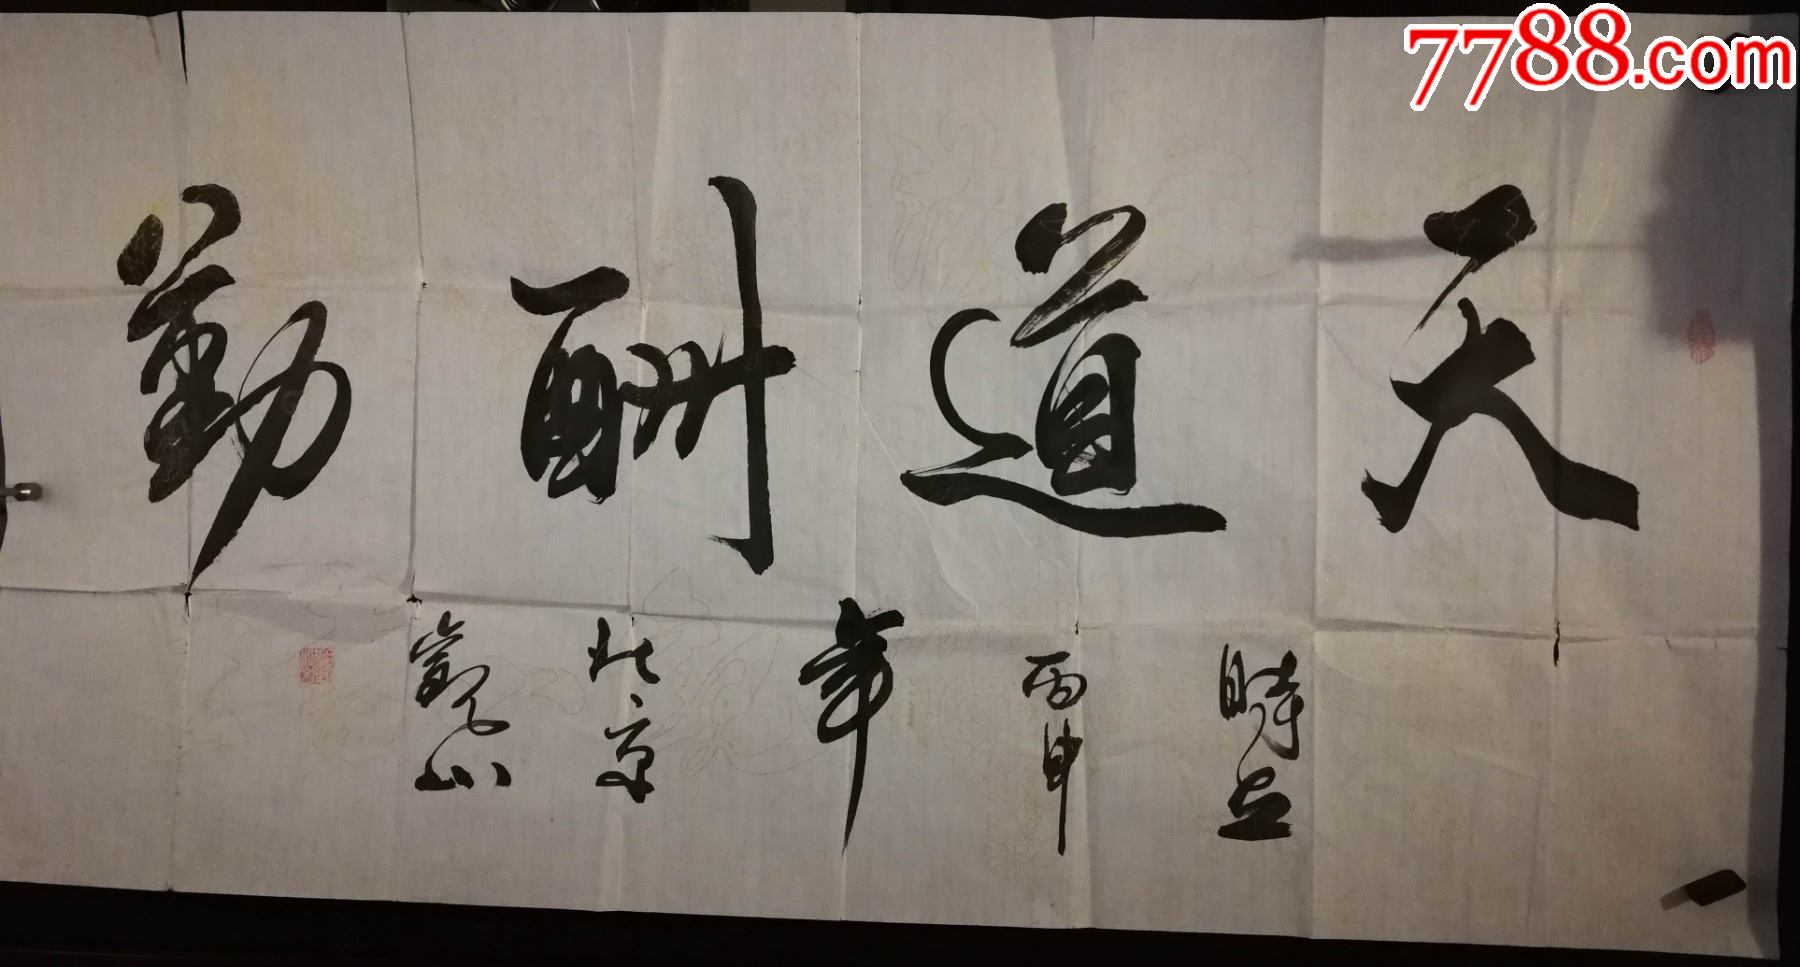 天道酬勤
時在
丙申
年
北京
7788.com